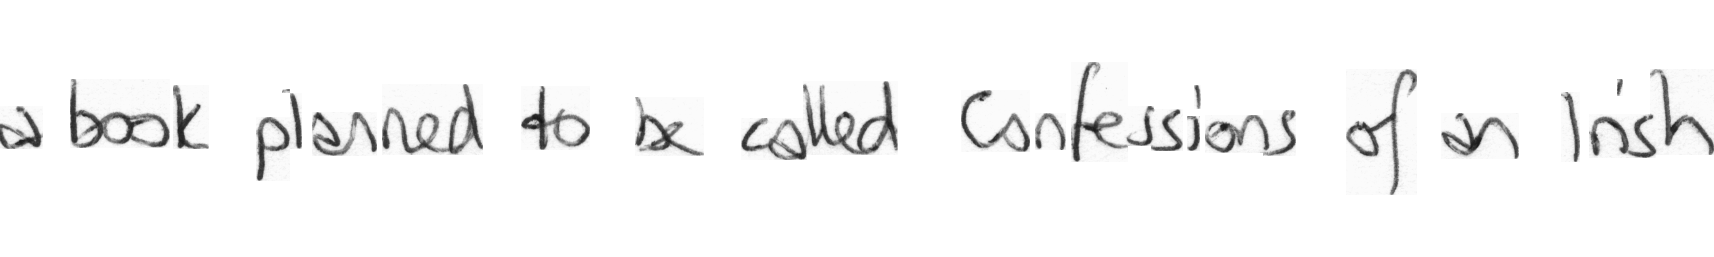 a book planned to be called Confessions of an Irish